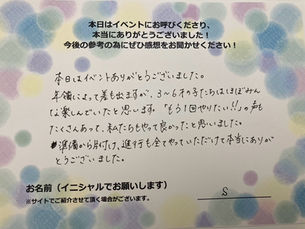 本日はイベントにお呼びくださり、
本当にありがとうございました!
今後の参考の為にぜひ感想をお聞かせください!
本日はイベントありがとうございました。
年齢によって差も出ますが、3〜6才の子たちはほぼみん
な楽しんでいたと思います。「もう1回やりたい!!」の声も
たくさんあって、私たちもやって良かったと思いました。
準備から片付け、進行も全てやっていただけて本当にあり
がとうございました。
お名前(イニシャルでお願いします)
S
※サイトでご紹介させて頂く場合がございます。